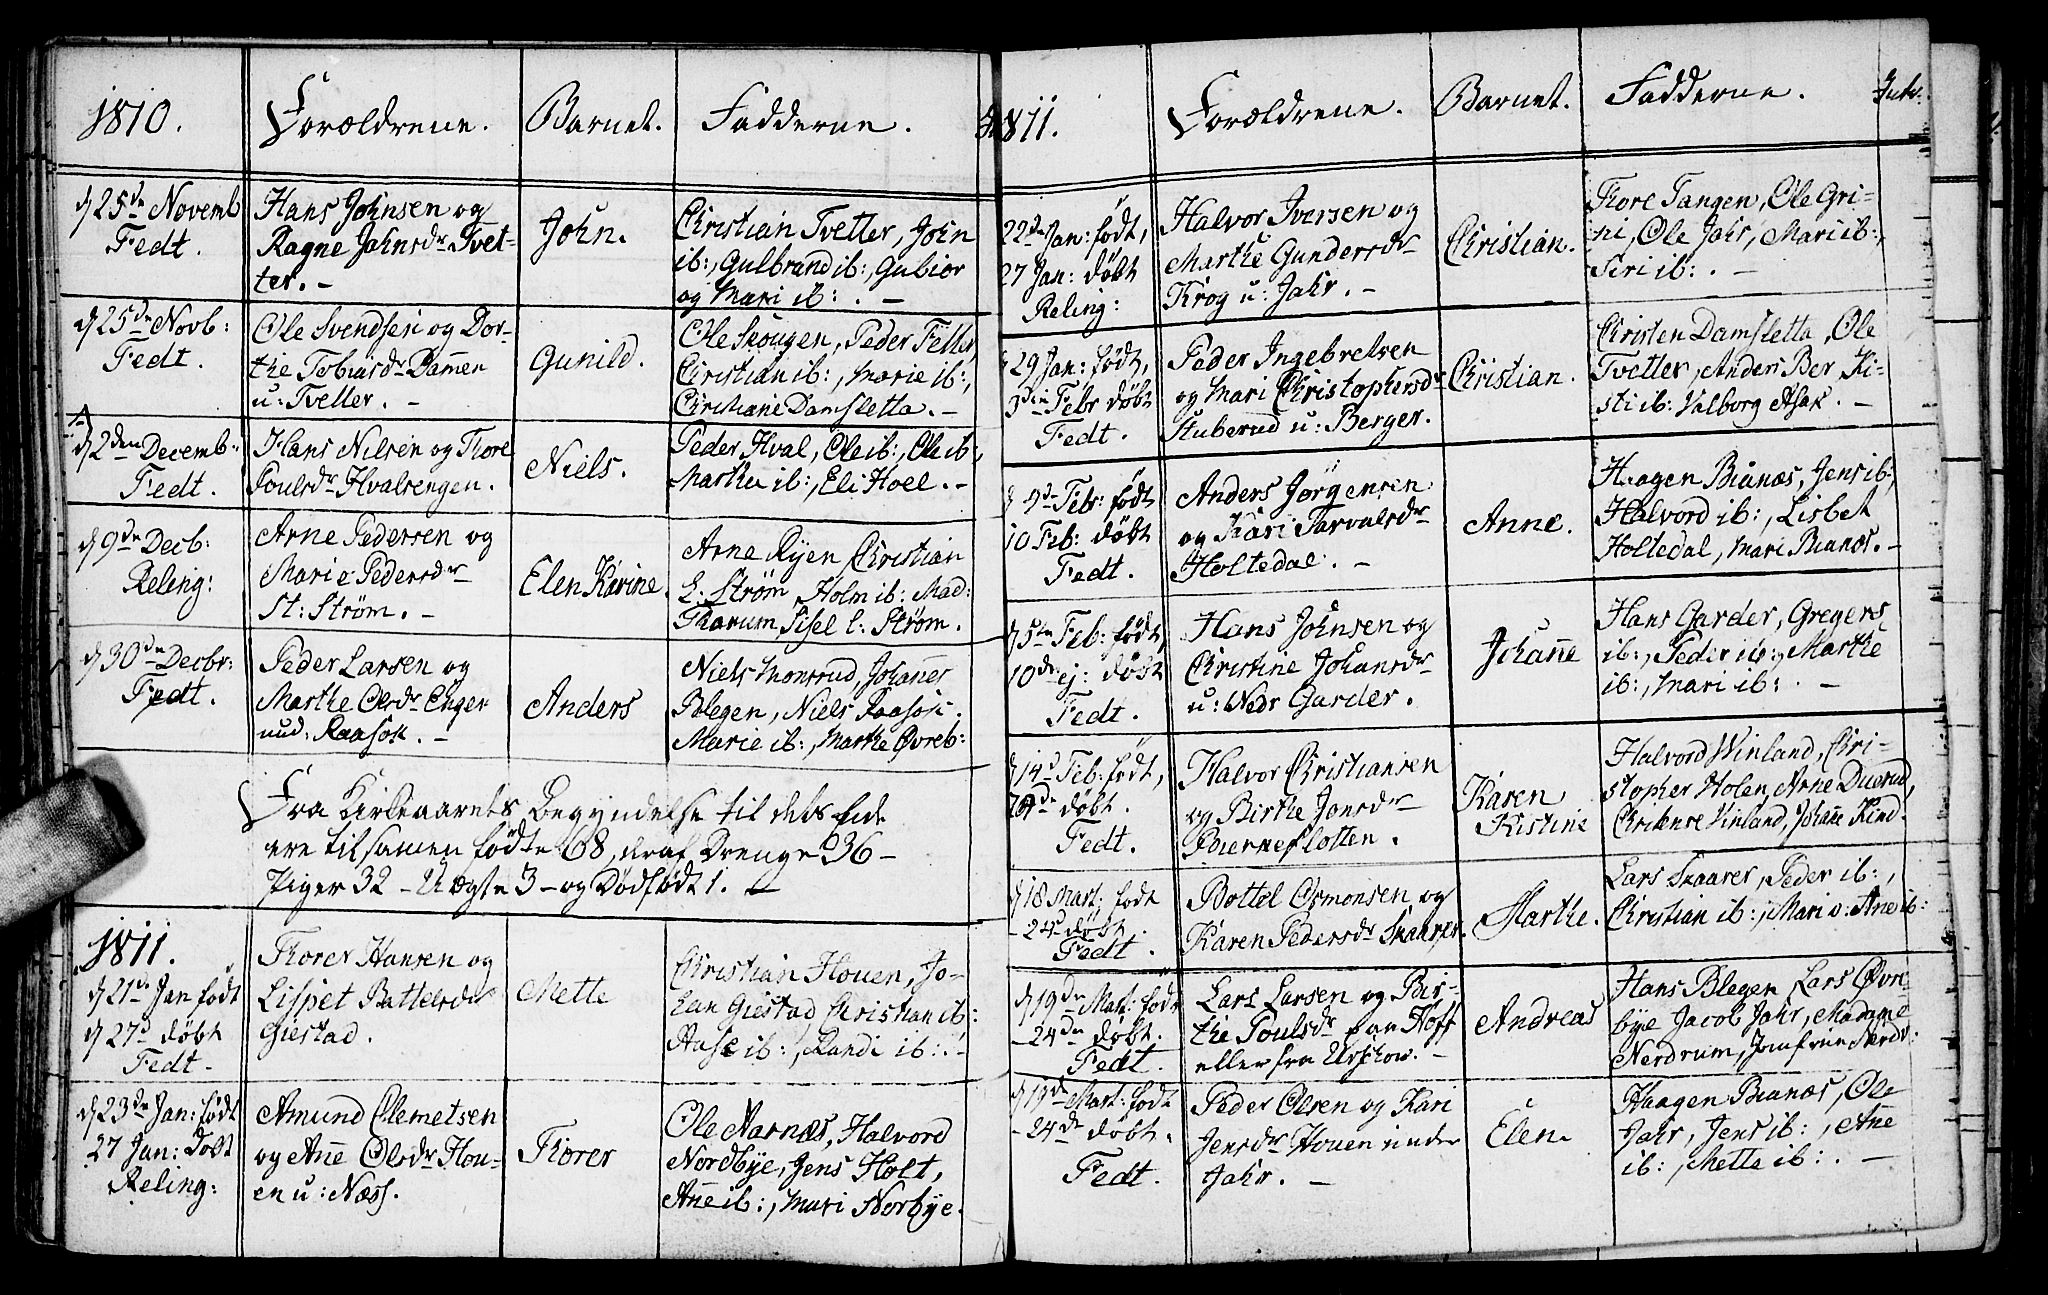 1810.
Forældrene.
Barnet.
Fadderne.
d 25de Novemb
Fedt.
Hans Johnsen og
Ragne Johnsdr Tvet-
ter. -
John.
Christian Tvetter, John
ib:, Gulbrand ib:, Gubiør
og Mari ib: . -
d 25de Novb:
Fedt.
Ole Svendsen og Dor-
the Tobiasdr Damen
u: Tvetter. -
Gunild.
Ole Skougen, Peder Fetter,
Christian ib:, Marie ib:,
Christiane Damsletta. -
d 2den Decemb:
Fedt.
Hans Nilsen og Tore
Poulsdr Hvalsengen.
Niels.
Peder Hval, Ole ib:, Ole ib:,
Marthe ib:, Eli Hoel. -
d 9de Decb:
Reling:
Arne Pedersen og
Marie Pedersdr
St: Strøm. -
Elen Karine.
Arne Ryen Christian
L. Strøm, Holm ib: Mad:
Tharum Sisel l: Strøm.
d 30de Decbr:
Fedt.
Peder Larsen og
Marthe Olsdr Enger
und: Raasok. -
Anders
Niels Monsrud, Johannes
Blegen, Niels Raasok.
Marie ib:, Marthe Øvreb:
Fra Kirkeaarets Begyndelse til dets Ende
ere tilsamen fødte 68, deraf Drenge 36 -
Piger 32 - Uægte 3 - og Dødfødt 1. -
1811.
d 21de Jan født
d 27d døbt
Fedt.
Torer Hansen og
Lispet Battelsdr
Giestad.
Mette
Christian Houen, Jo-
han Giestad Christian ib:
Aase ib:, Randi ib: . -
d 23de Jan: født
27 Jan: Døbt
Reling:
Amund Clemetsen
og Anne Olsdr Hou-
en u: Næss.
Torer
Ole Narnæs, Halvord
Nordbye, Jens Holt,
Anne ib:, Mari Norbye.
1811.
Forældrene.
Barnet.
Fadderne.
22de Jan: født,
27 Jan: døbt
Reling:
Halvor Iversen og
Marthe Gundersdr
Krog u: Jahr. -
Christian.
Tore Tangen, Ole Gri-
ni, Ole Jahr, Mari ib:,
Siri ib: . -
29 Jan: født,
3de Febr døbt
Fedt.
Peder Ingebretsen
og Mari Christophersdr
Stuberud u: Berger.
Christian.
Christen Damsletta, Ole
Tvetter, Anders Ber Ki-
sti ib: Valborg Asak. -
d 4de Feb: født
10 Feb: døbt
Fedt.
Anders Jørgensen
og Kari Torvalsdr
Holtedal. -
Anne.
Haagen Bianæs, Jens ib:,
Halvord ib:, Lisbet
Holtedal, Mari Bianæs. -
d 5te Feb: født,
10de ej: døbt
Fedt.
Hans Johnsen og
Christine Johansdr
u: Nedr Garder.
Johanne
Hans Garder, Gregers
ib:, Peder ib:, Marthe
ib:, Mari ib: . -
d 14d Feb: født,
24de døbt.
Fedt.
Halvor Christiansen
og Birthe Jonsdr
Bierneflotten.
Karen
Kistine
Halvord Winland, Chri-
stopher Holen, Arne Duerud,
Christense Vinland, Johanne Kind.
d 18 Mart: født
- 24d døbt.
Fedt.
Bottel Osmonsen og
Karen Pedersdr Skaarer.
Marthe.
Lars Skaarer, Peder ib:,
Christian ib:, Mari o: Ane ib:
d 19de Mart: født
- 24de døbt.
Fedt.
Lars Larsen og Bir-
the Poulsdr fan Hoff
eller fra Urskow. -
Andreas
Hans Blegen Lars Øvre-
bye Jacob Jahr, Madame
Nerdrum, Jomfrue Nerdr:
d 19de Mart: født
- 24de døbt.
Fedt.
Peder Olsen og Kari
Jensdr Houen under
Jahr. -
Elen.
Haagen Bianæs, Ole
Jahr, Jens ib: , Anne
ib:, Mette ib: . -